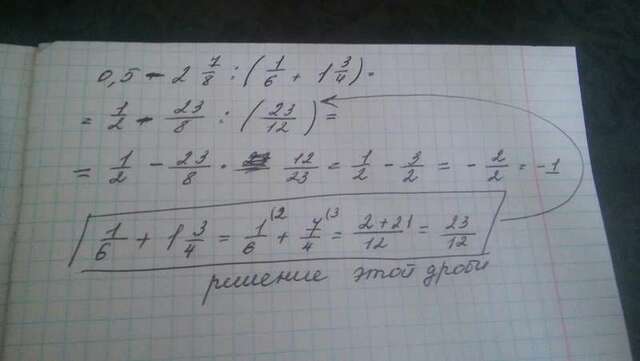 0,5 - 2 7/8 : (1/6 + 1 3/4) =
= 1/2 - 23/8 : (23/12) =
= 1/2 - 23/8 · 12/23 = 1/2 - 3/2 = - 2/2 = -1
1/6 + 1 3/4 = 1/6 (2 + 7/4 (3 = 2+21/12 = 23/12
решение этой дроби